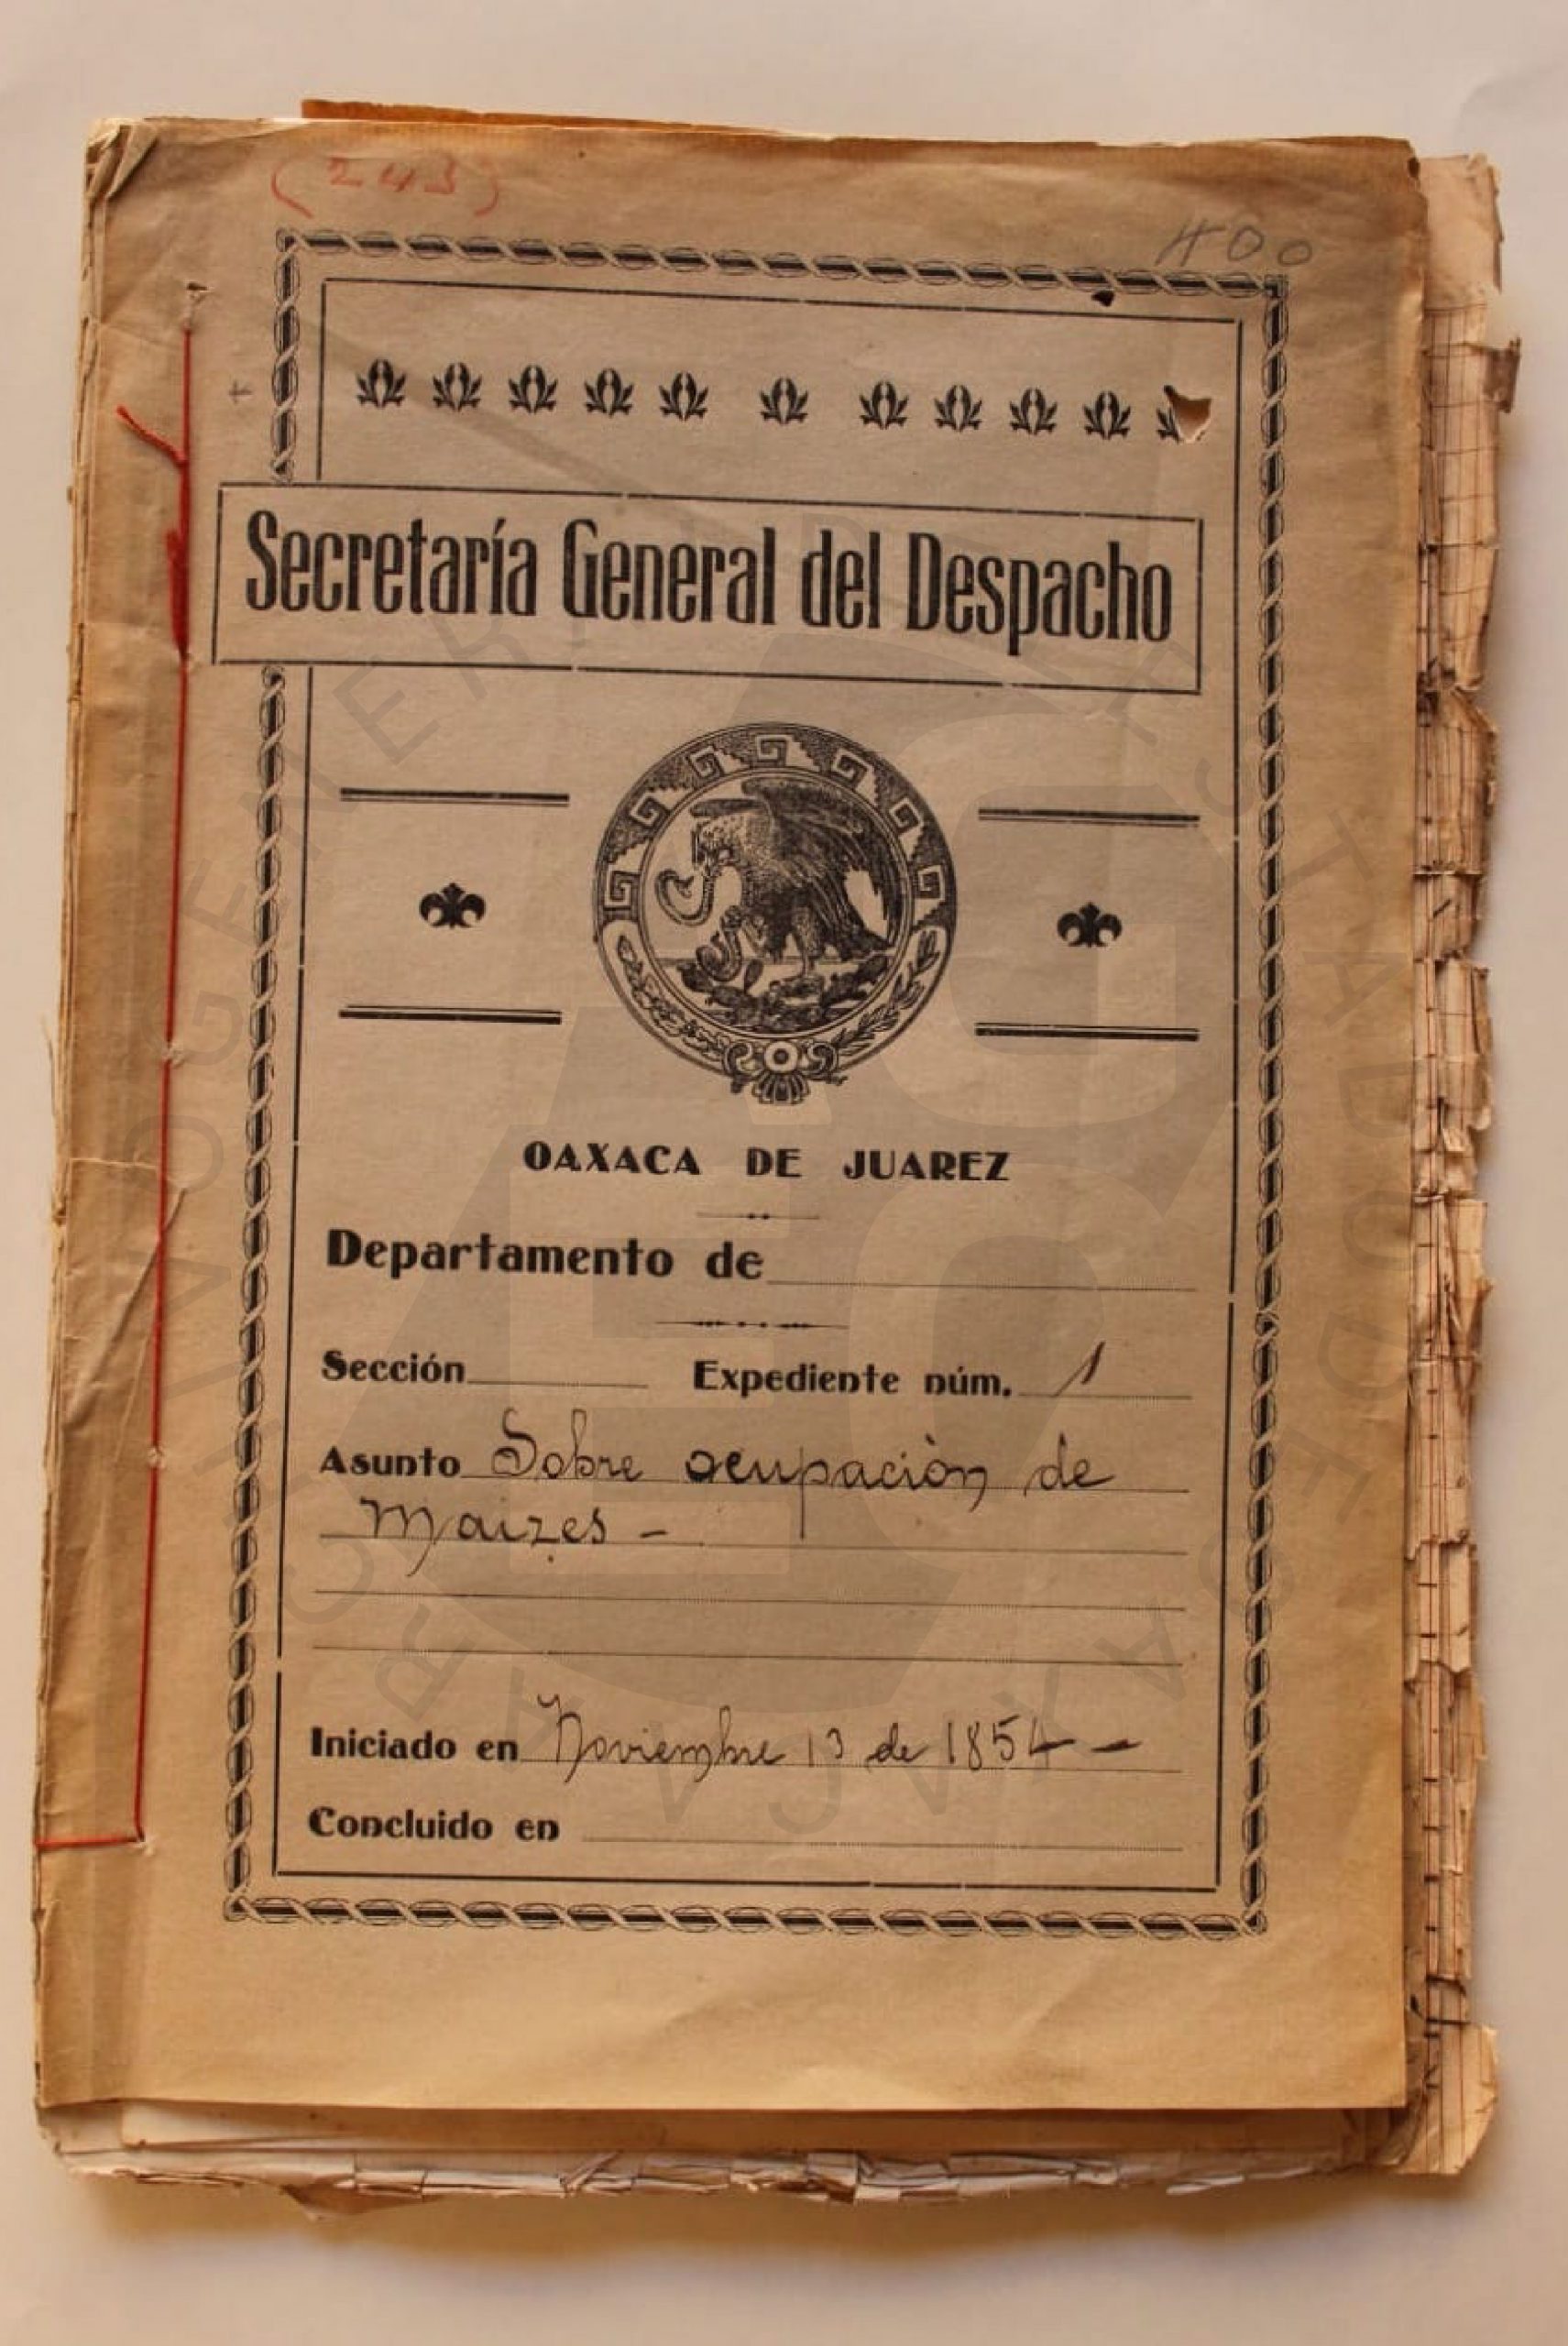 (243)
400
Secretaría General del Despacho
OAXACA DE JUAREZ
Departamento de
Sección Expediente núm. 1
Asunto Sobre ocupaciòn de
Maizes -
Iniciado en Noviembre 13 de 1854 -
Concluido en
ARCHIVO GENERAL DEL ESTADO DE OAXACA